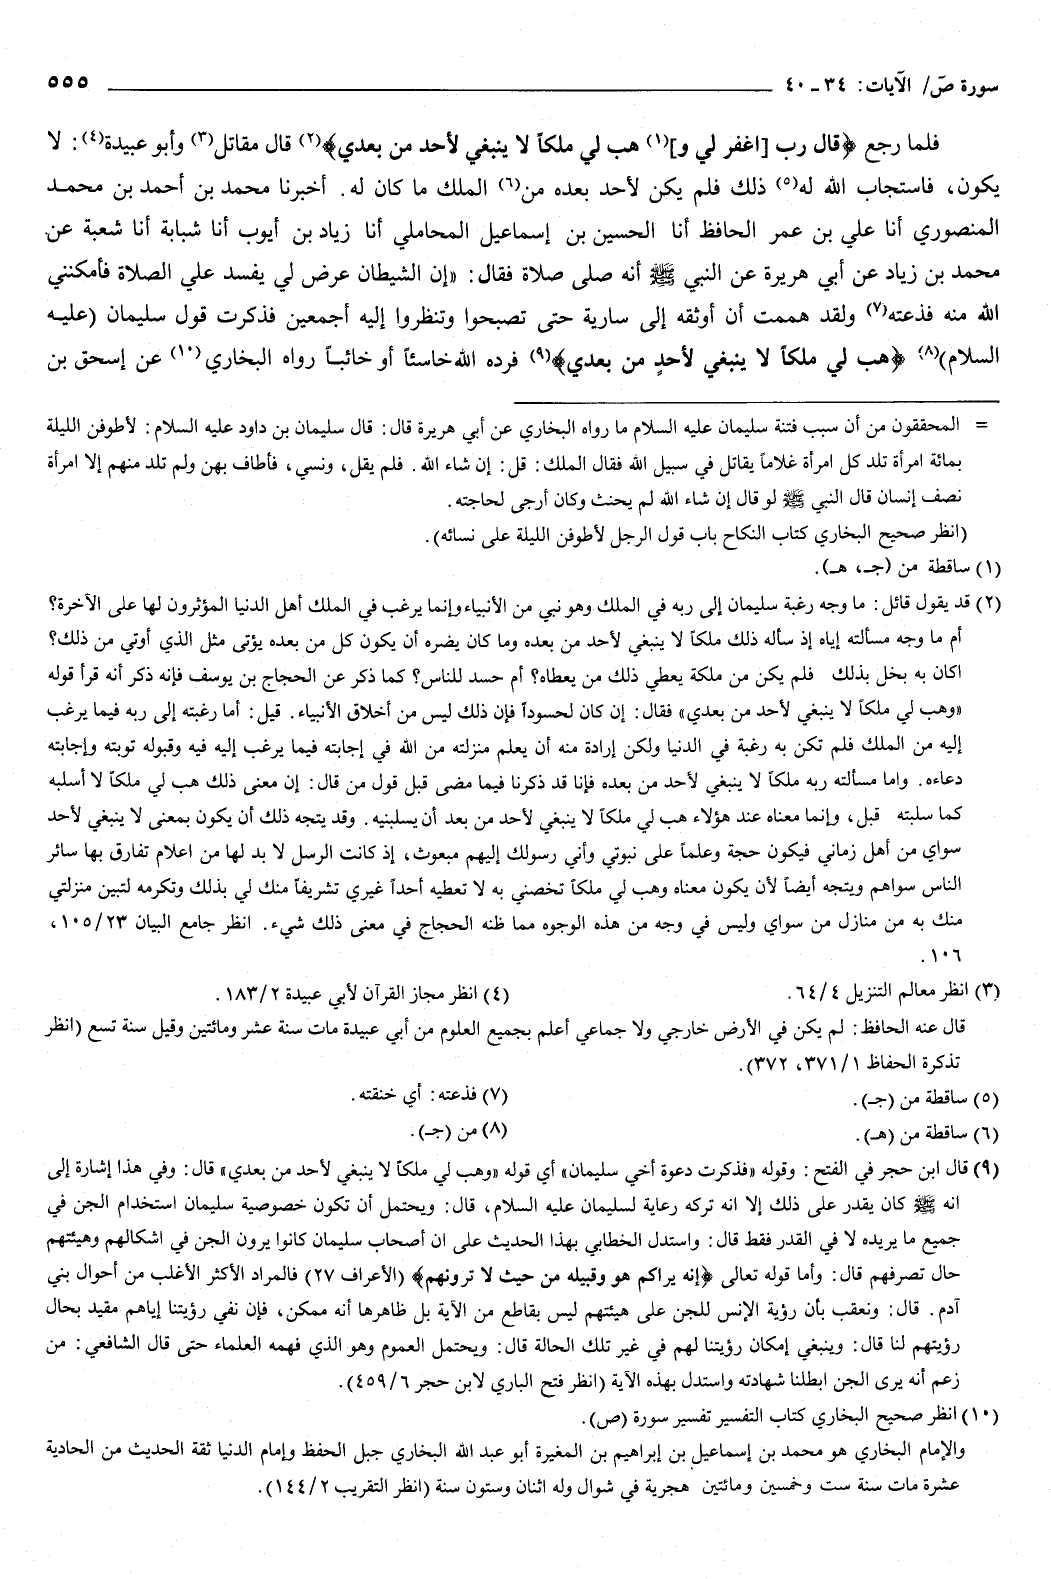 سورة صۤ/ الآيات: ٣٤ ـ ٤٠ ٥٥٥
فلما رجع ﴿قال رب [اغفر لي و](١) هب لي ملكاً لا ينبغي لأحد من بعدي﴾(٢) قال مقاتل(٣) وأبو عبيدة(٤): لا
يكون، فاستجاب الله له(٥) ذلك فلم يكن لأحد بعده من(٦) الملك ما كان له. أخبرنا محمد بن أحمد بن محمد
المنصوري أنا علي بن عمر الحافظ أنا الحسين بن إسماعيل المحاملي أنا زياد بن أيوب أنا شبابة أنا شعبة عن
محمد بن زياد عن أبي هريرة عن النبي ﷺ أنه صلى صلاة فقال: «إن الشيطان عرض لي يفسد علي الصلاة فأمكنني
الله منه فذعته(٧) ولقد هممت أن أوثقه إلى سارية حتى تصبحوا وتنظروا إليه أجمعين فذكرت قول سليمان (عليه
السلام)(٨) ﴿هب لي ملكاً لا ينبغي لأحدٍ من بعدي﴾(٩) فرده الله خاسئاً أو خائباً رواه البخاري(١٠) عن إسحق بن
= المحققون من أن سبب فتنة سليمان عليه السلام ما رواه البخاري عن أبي هريرة قال: قال سليمان بن داود عليه السلام: لأطوفن الليلة
بمائة امرأة تلد كل امرأة غلاماً يقاتل في سبيل الله فقال الملك: قل: إن شاء الله. فلم يقل، ونسي، فأطاف بهن ولم تلد منهم إلا امرأة
نصف إنسان قال النبي ﷺ لو قال إن شاء الله لم يحنث وكان أرجى لحاجته.
(انظر صحيح البخاري كتاب النكاح باب قول الرجل لأطوفن الليلة على نسائه).
(١) ساقطة من (جـ، هـ).
(٢) قد يقول قائل: ما وجه رغبة سليمان إلى ربه في الملك وهو نبي من الأنبياء وإنما يرغب في الملك أهل الدنيا المؤثرون لها على الآخرة؟
أم ما وجه مسألته إياه إذ سأله ذلك ملكاً لا ينبغي لأحد من بعده وما كان يضره أن يكون كل من بعده يؤتى مثل الذي أوتي من ذلك؟
اكان به بخل بذلك فلم يكن من ملكة يعطي ذلك من يعطاه؟ أم حسد للناس؟ كما ذكر عن الحجاج بن يوسف فإنه ذكر أنه قرأ قوله
«وهب لي ملكاً لا ينبغي لأحد من بعدي» فقال: إن كان لحسوداً فإن ذلك ليس من أخلاق الأنبياء. قيل: أما رغبته إلى ربه فيما يرغب
إليه من الملك فلم تكن به رغبة في الدنيا ولكن إرادة منه أن يعلم منزلته من الله في إجابته فيما يرغب إليه فيه وقبوله توبته وإجابته
دعاءه. واما مسألته ربه ملكاً لا ينبغي لأحد من بعده فإنا قد ذكرنا فيما مضى قبل قول من قال: إن معنى ذلك هب لي ملكاً لا أسلبه
كما سلبته قبل، وإنما معناه عند هؤلاء هب لي ملكاً لا ينبغي لأحد من بعد أن يسلبنيه. وقد يتجه ذلك أن يكون بمعنى لا ينبغي لأحد
سواي من أهل زماني فيكون حجة وعلماً على نبوتي وأني رسولك إليهم مبعوث، إذ كانت الرسل لا بد لها من اعلام تفارق بها سائر
الناس سواهم ويتجه أيضاً لأن يكون معناه وهب لي ملكاً تخصني به لا تعطيه أحداً غيري تشريفاً منك لي بذلك وتكرمه لتبين منزلتي
منك به من منازل من سواي وليس في وجه من هذه الوجوه مما ظنه الحجاج في معنى ذلك شيء. انظر جامع البيان ١٠٥/٢٣،
١٠٦.
(٣) انظر معالم التنزيل ٦٤/٤. (٤) انظر مجاز القرآن لأبي عبيدة ١٨٣/٢.
قال عنه الحافظ: لم يكن في الأرض خارجي ولا جماعي أعلم بجميع العلوم من أبي عبيدة مات سنة عشر ومائتين وقيل سنة تسع (انظر
تذكرة الحفاظ ٣٧١/١، ٣٧٢).
(٥) ساقطة من (جـ). (٧) فذعته: أي خنقته.
(٦) ساقطة من (هـ). (٨) من (جـ).
(٩) قال ابن حجر في الفتح: وقوله «فذكرت دعوة أخي سليمان» أي قوله «وهب لي ملكاً لا ينبغي لأحد من بعدي» قال: وفي هذا إشارة إلى
انه ﷺ كان يقدر على ذلك إلا انه تركه رعاية لسليمان عليه السلام، قال: ويحتمل أن تكون خصوصية سليمان استخدام الجن في
جميع ما يريده لا في القدر فقط قال: واستدل الخطابي بهذا الحديث على ان أصحاب سليمان كانوا يرون الجن في اشكالهم وهيئتهم
حال تصرفهم قال: وأما قوله تعالى ﴿إنه يراكم هو وقبيله من حيث لا ترونهم﴾ (الأعراف ٢٧) فالمراد الأكثر الأغلب من أحوال بني
آدم. قال: ونعقب بأن رؤية الإنس للجن على هيئتهم ليس بقاطع من الآية بل ظاهرها أنه ممكن، فإن نفي رؤيتنا إياهم مقيد بحال
رؤيتهم لنا قال: وينبغي إمكان رؤيتنا لهم في غير تلك الحالة قال: ويحتمل العموم وهو الذي فهمه العلماء حتى قال الشافعي: من
زعم أنه يرى الجن ابطلنا شهادته واستدل بهذه الآية (انظر فتح الباري لابن حجر ٤٥٩/٦).
(١٠) انظر صحيح البخاري كتاب التفسير تفسير سورة (ص).
والإمام البخاري هو محمد بن إسماعيل بن إبراهيم بن المغيرة أبو عبد الله البخاري جبل الحفظ وإمام الدنيا ثقة الحديث من الحادية
عشرة مات سنة ست وخمسين ومائتين هجرية في شوال وله اثنان وستون سنة (انظر التقريب ١٤٤/٢).